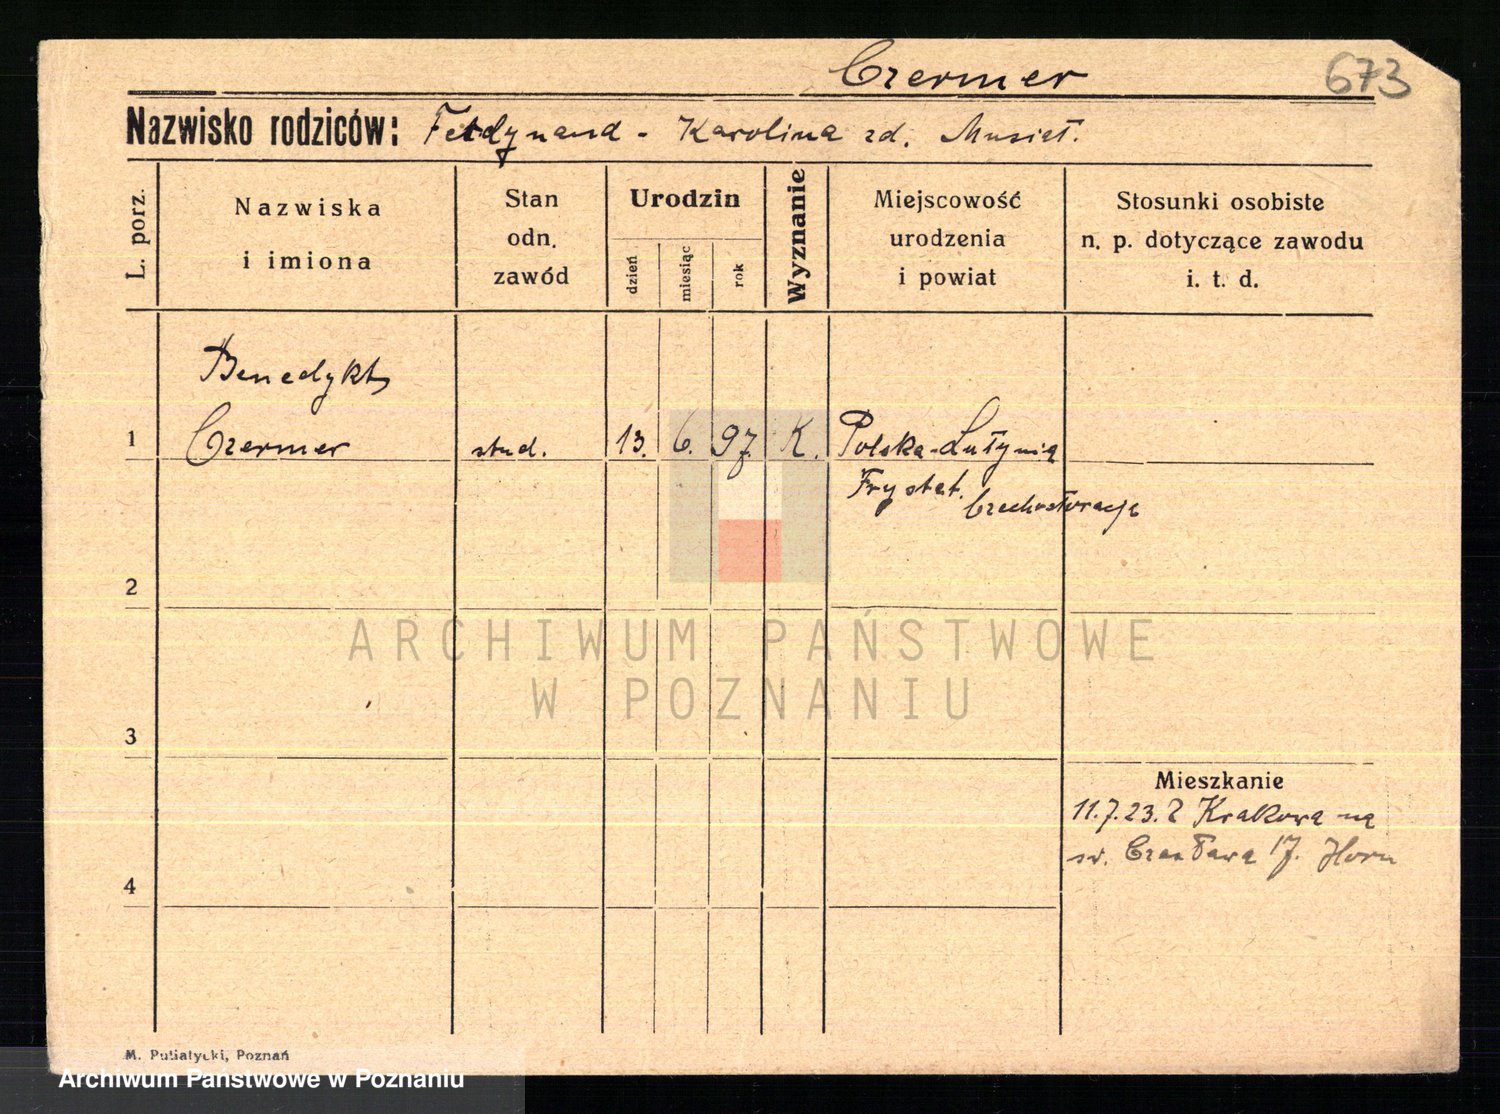 Czermer
673
Nazwisko rodziców: Ferdynand - Karolina zd. Musiał.
L. porz.
Nazwiska
i imiona
Stan
odn.
zawód
Urodzin
dzień
miesiąc
rok
Wyznanie
Miejscowość
urodzenia
i powiat
Stosunki osobiste
n. p. dotyczące zawodu
i. t. d.
Benedykt
1 Czermer stud. 13. 6. 97. K. Polska-Lutynia
Frysztat.
Czechosłowacja
2
ARCHIWUM PAŃSTWOWE
W POZNANIU
3
Mieszkanie
11.7.23. Z Krakowa na
św. Czesława 17. Horn
4
M. Putiatycki, Poznań
Archiwum Państwowe w Poznaniu